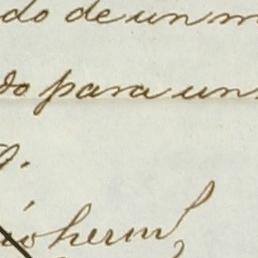 do de un m
do para un
o.
io herm